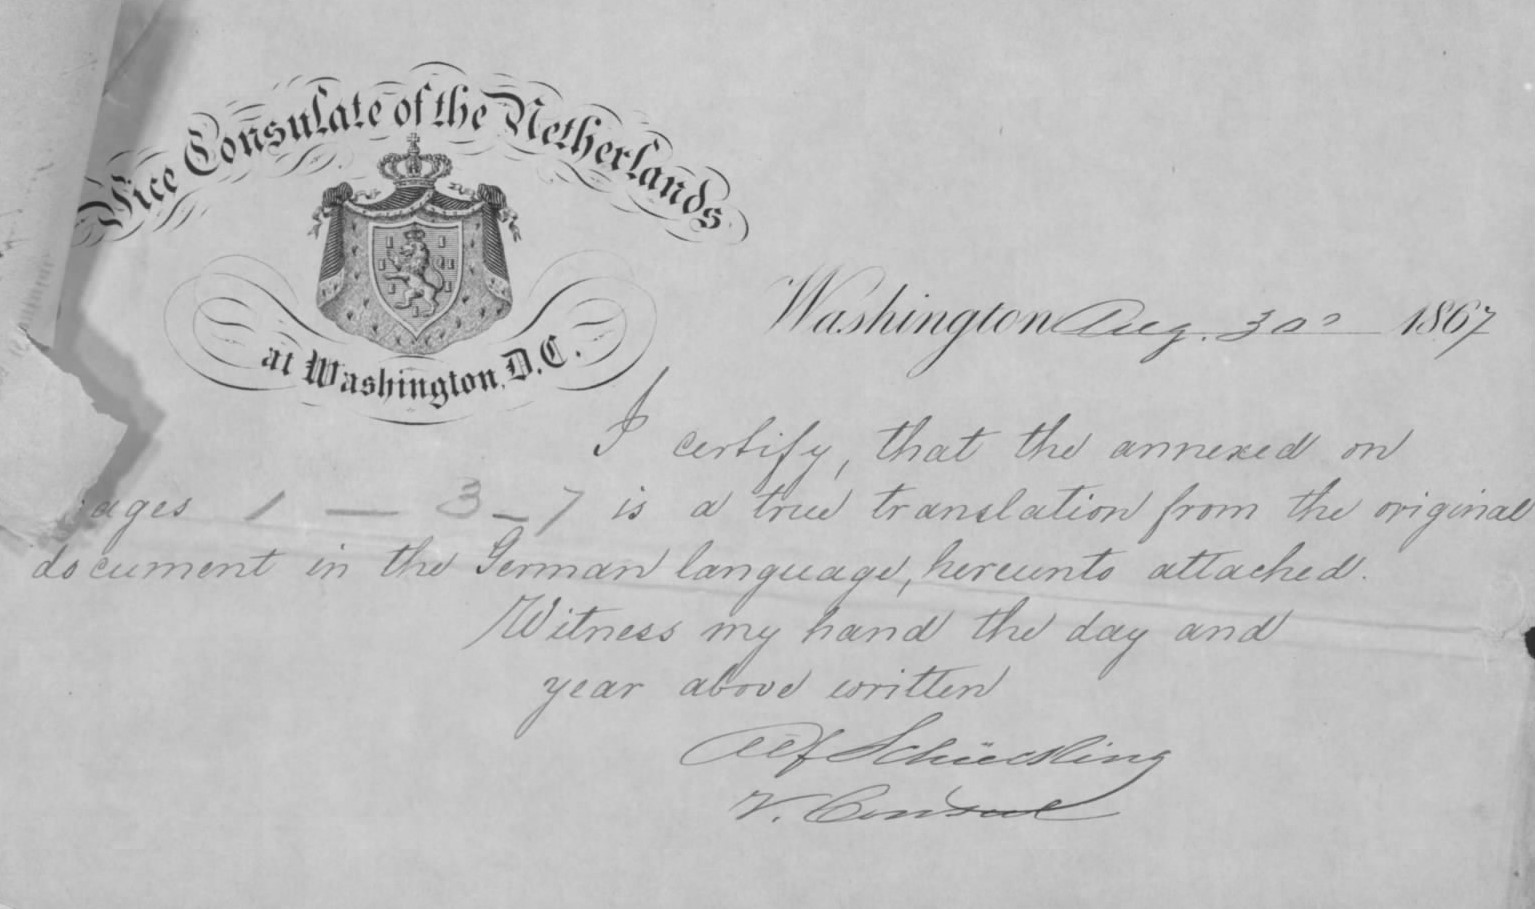 Vice Consulate of the Netherlands
at Washington, D.C.
Washington Aug. 30 1867
I certify, that the annexed on
pages 1 — 3 – 7 is a true translation from the original
document in the German language, hereunto attached.
Witness my hand the day and
year above written
Alf Schücking
V. Consul